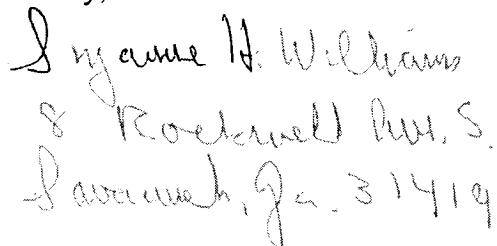 Suzanne H. Williams
8 Rockwell Ave. S.
Savannah, Ga. 31419